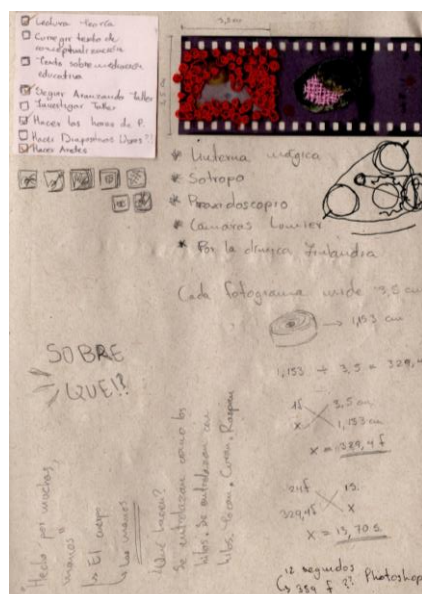 Lectura Teoría
Corregir texto de
conceptualización
Texto sobre mediación
educativa
Seguir Avanzando Taller
Investigar Taller
Hacer las horas de P.
Hacer Diapositivas Vivas??
Hacer Aretes
3,5 cm
* Linterna mágica
* Sotropo
* Praxidoscopio
* Camaras Lumier
* Por la
Cada fotograma mide 3,5 cm
→ 1,153 cm
1,153 ÷ 3,5 = 329,4
1f 3,5 cm
x 1,153 cm
x = 329,4 f
24f 1s.
329,4f x
x = 13,70 s.
12 segundos
↳ 384 f ?? Photoshop
SOBRE
QUE!?
"Hecho por muchas
manos"
↳ El cuerpo
↳ Las manos
¿Que hacen?
Se entrelazan como los
hilos. Se entrelazan con
hilos. Tocan. Cosen. Raspan